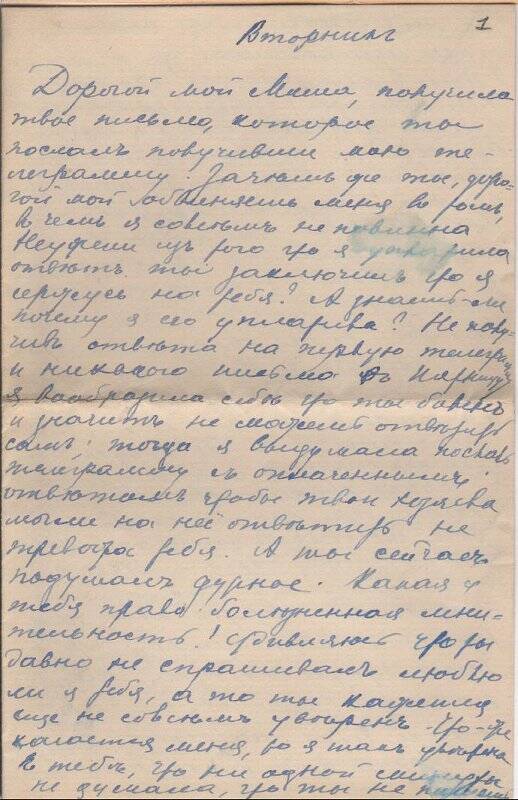 Вторникъ 1
Дорогой мой Миша, получила
твое письмо, которое ты
послалъ получивши мою те-
леграмму. Зачѣмъ же ты, доро-
гой мой обвиняешь меня въ томъ,
въ чемъ я совсѣмъ не повинна
Неужели изъ того что я уплатила
отвѣтъ ты заключилъ что я
сержусь на тебя? А знаешь-ли
почему я его уплатила? Не полу-
чивъ отвѣта на первую телеграмму
и никакого письма въ
я вообразила себѣ что ты боленъ
и значитъ не можешь отвѣтить
самъ; тогда я выдумала послать
телеграмму съ оплаченнымъ
отвѣтомъ чтобы твои хозяева
могли на неё отвѣтить не
тревожа тебя. А ты сейчасъ
подумалъ дурное. Какая у
тебя право болѣзненная мни-
тельность! Удивляюсь что ты
давно не спрашивалъ люблю
ли я тебя, а то ты кажется
еще не совсѣмъ увѣренъ. Что-же
касается меня, то я такъ увѣрена
въ тебѣ, что ни одной минуты
не думала, что ты не